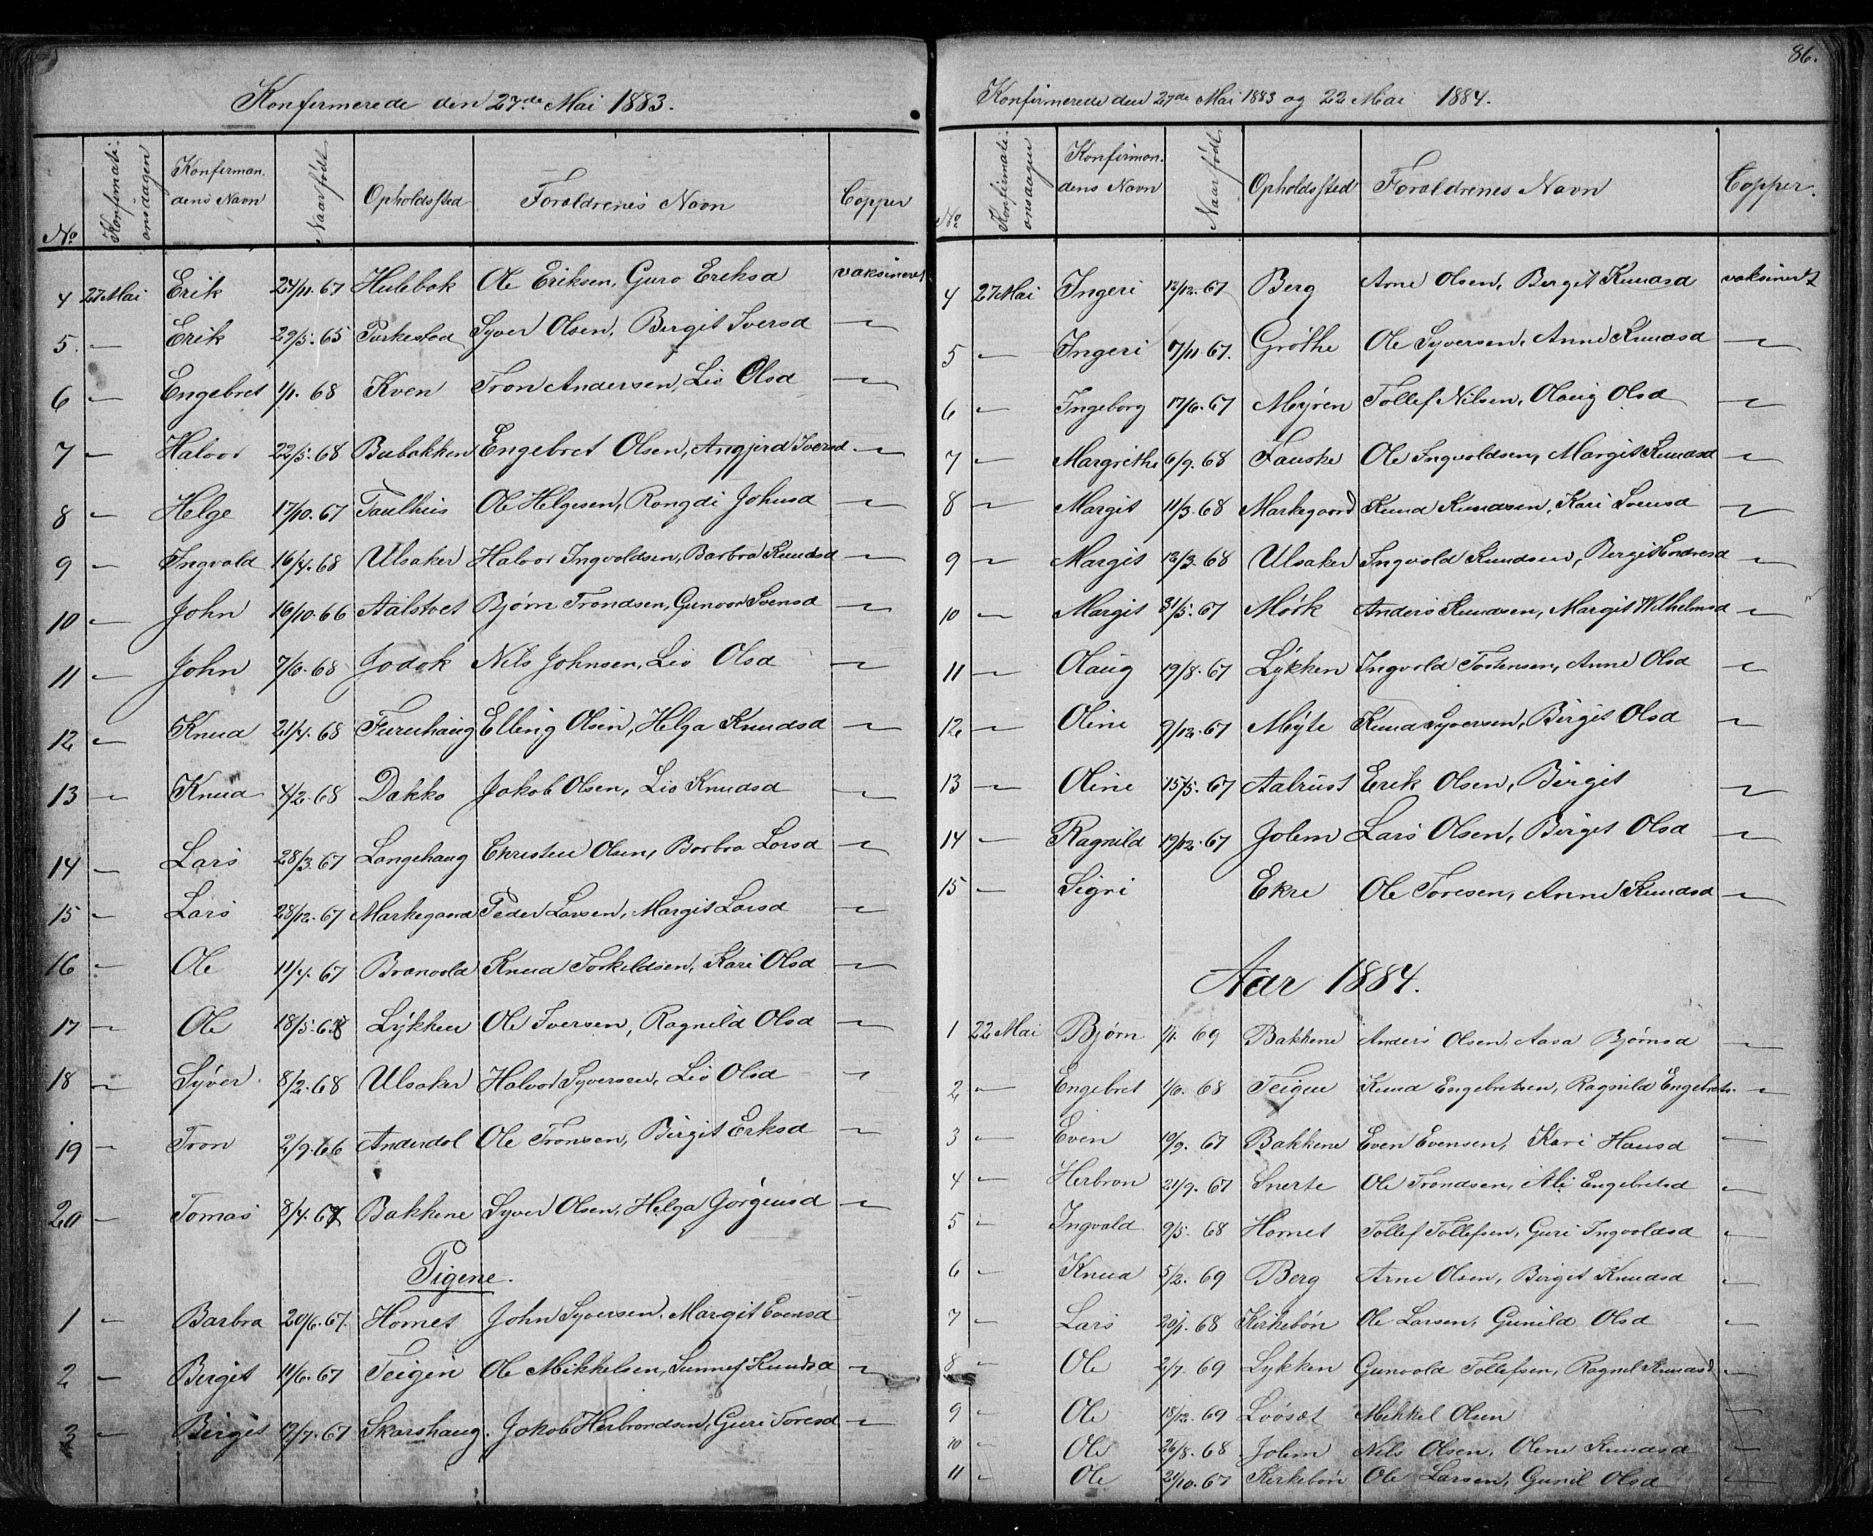 Konfirmerede den 27de Mai 1883.
No. Konfirmationsdagen Konfirmandens Navn Naar født Opholdssted Forældrenes Navn Copper
4 27 Mai Erik 24/11.67 Hulebak Ole Eriksen, Guro Eriksd vaksineret
5 — Erik 29/5.65 Turkestad Syver Olsen, Birgit Iversd —
6 — Engebret 1/1.68 Kven Tron Andersen, Liv Olsd —
7 — Halvor 22/5.68 Bubakken Engebret Olsen, Angjerd Iversd —
8 — Helge 17/10.67 Taulhus Ole Helgesen, Rongdi Johnsd —
9 — Ingvald 16/4.68 Ulsaker Halvor Ingvoldsen, Barbra Knudsd —
10 — John 16/10.66 Aalstvet Bjørn Trondsen, Gunvor Svensd —
11 — John 7/6.68 Jodok Nils Johnsen, Liv Olsd —
12 — Knud 21/4.68 Furuhaug Elling Olsen, Helga Knudsd —
13 — Knud 4/2.68 Dokko Jakob Olsen, Liv Knudsd —
14 — Lars 28/3.67 Langehaug Christen Olsen, Barbra Larsd —
15 — Lars 28/12.67 Markegaard Peder Larsen, Margit Larsd —
16 — Ole 11/4.67 Branvold Knud Torkildsen, Kari Olsd —
17 — Ole 18/5.68 Lykken Ole Iversen, Ragnild Olsd —
18 — Syver 8/2.68 Ulsaker Halvor Syversen, Liv Olsd —
19 — Tron 2/9.66 Anderdal Ole Tronsen, Birgit Eriksd —
20 — Tomas 8/4.67 Bakkene Syver Olsen, Helga Jørgensd —
Pigene.
1 — Barbra 20/6.67. Homet John Syversen, Margit Evensd —
2 — Birgit 11/6.67 Teigen Ole Mikkelsen, Sunnef Knudsd —
3 — Birgit 12/7.67 Skarshaug. Jakob Herbrandsen, Guri Toresd —
86.
Konfirmerede den 27de Mai 1883 og 22 Mai 1884.
No Konfirmationsdagen Konfirmandens Navn Naar født. Opholdssted Forældrenes Navn Copper.
4 27 Mai Ingeri 12/12.67 Berg Arne Olsen, Birgit Knudsd vaksinert
5 — Ingeri 7/11.67. Grøthe Ole Syversen, Anne Knudsd —
6 — Ingeborg 17/6.67 Myren Tollef Nilsen, Olaug Olsd —
7 — Margrethe 6/9.68 Fauske Ole Ingvoldsen, Margit Knudsd —
8 — Margit 11/3.68 Markegaard Knud Knudsen, Kari Svensd —
9 — Margit 12/3.68 Ulsaker Ingvold Knudsen, Bergit Endresd —
10 — Margit 31/5.67 Mørk Anders Knudsen, Margit Wilhelmsd —
11 — Olaug 19/8.67 Lykken Ingvold Tostensen, Anne Olsd —
12 — Oline 9/12.67 Myte Knud Syversen, Birgit Olsd —
13 — Oline 15/5.67 Aalrust Erik Olsen, Birgit —
14 — Ragnild 19/12.67 Jolem Lars Olsen, Birgit Olsd —
15 — Sigri Ekre Ole Toresen, Anne Knudsd —
Aar 1884.
1 22 Mai Bjørn 1/1. 69 Bakkene Anders Olsen, Aasa Bjørnsd —
2 — Engebret 1/6. 68 Teigen Knud Engebretsen, Ragnild Engebrets. —
3 — Even 19/9. 67 Bakkene Even Evensen, Kari Hansd —
4 — Herbran 21/9. 67 Snerte Ole Trondsen, Ali Engebretsd —
5 — Ingvald 9/5. 68 Homet Tollef Tollefsen, Guri Ingvoldsd —
6 — Knud 5/2. 69 Berg Arne Olsen, Birget Knudsd —
7 — Lars 20/1. 68 Kirkebøn Ole Larsen, Gunild Olsd —
8 — Ole 2/7. 69 Lykken Gunvold Tollefsen, Ragnil Knudsd —
9 — Ole 18/12. 69 Loøset Mikkel Olsen —
10 — Ole 26/8. 68 Jolem Nils Olsen, Olene Knudsd —
11 — Ole 21/10. 67 Kirkebøn Ole Larsen, Gunil Olsd —